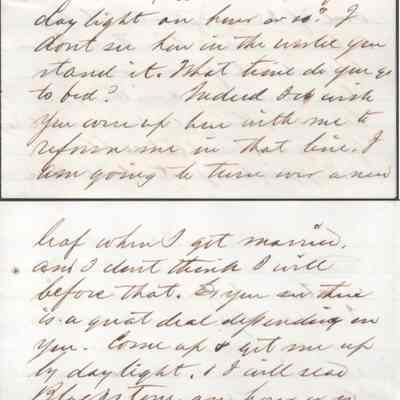 day light an hour or so? I
dont see how in the world you
stand it. What time do you go
to bed? Indeed I do wish
you were up here with me to
reform me in that line. I
am going to turn over a new
leaf when I get married.
and I dont think I will
before that. So you see there
is a great deal depending on
you. Come up & get me up
by day light. & I will read
Blackstone an hour or